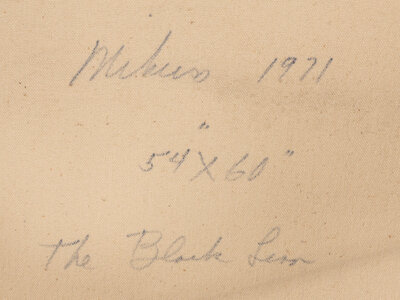 Mikuss 1971
54" X 60"
The Black Lion